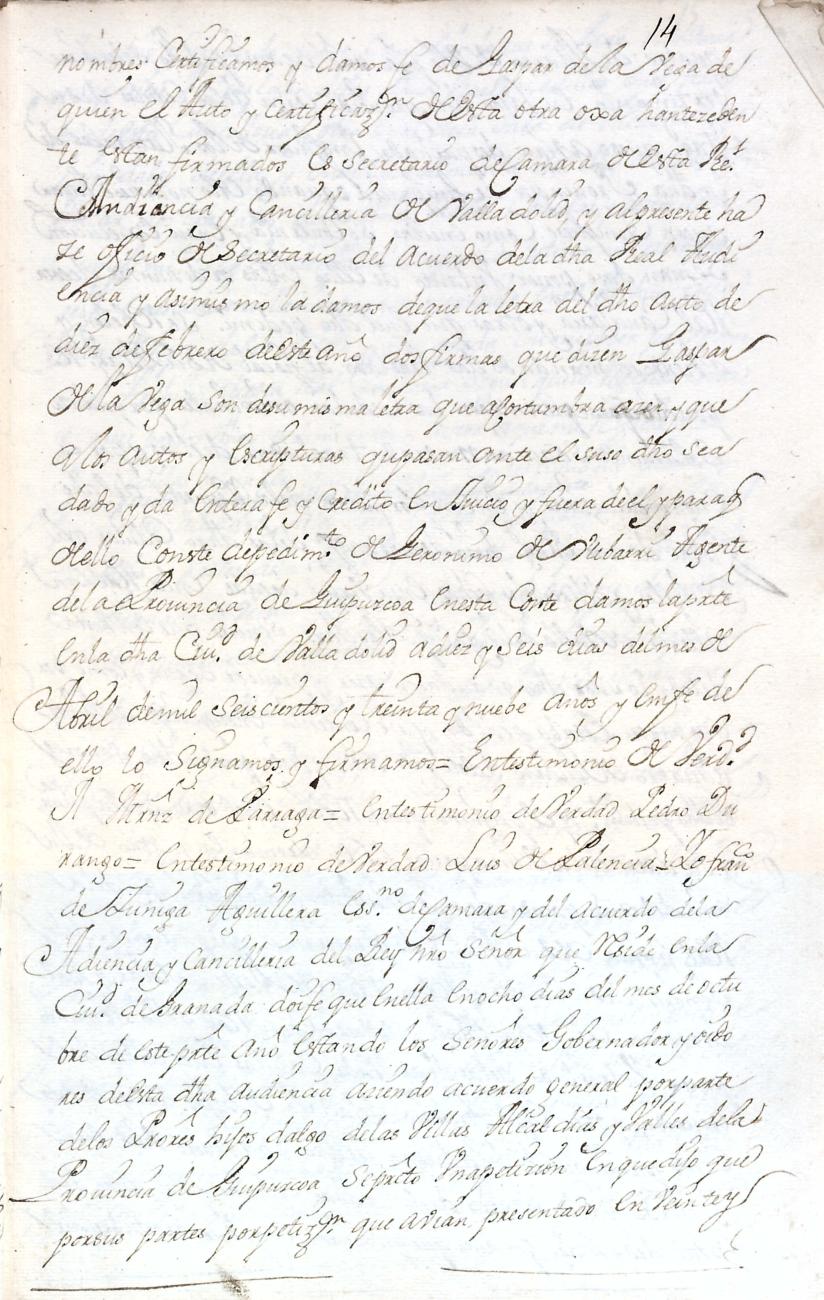 14
nombres Certificamos y damos fe de Gaspar de la Vega de
quien el Auto y Certificazon. de esta otra oxa hantezeden
te estan firmados es Secretario de Camara de esta Rel.
Audiencia y Cancilleria de Valladolid, y al presente ha
ze ofizio de Secretario del Acuerdo dela dha Real Audi
encia y asimismo la damos de que la letra del dho auto de
diez de febrero de este año dos firmas que dizen Gaspar
de la Vega son de su misma letra que acostumbra azer y que
a los autos y Escripturas q pasan ante el suso dho sea
dado y da entera fe y credito en Juicio y fuera de el y para q
de ello Conste de pedimto. de Geronimo de Uibarri Agente
de la Provincia de Guipuzcoa en esta Corte damos la prte
en la dha Ciud. de Valladolid a diez y seis dias del mes de
Abril de mil seiscientos y treinta y nuebe años y en fe de
ello lo Signamos y firmamos= En testimonio de Verd.d
Mrnz de Parraga= en testimonio de Verdad Pedro Du
rango= En testimonio de Verdad Luis de Palencia= Yo franco
de Zuniga Aguillera Ess.no de Camara y del acuerdo de la
Adiencia y Cancilleria del Rey nro Señor que Reside en la
Ciud. de Granada doi fe que en ella en ocho dias del mes de octu
bre de este prte año estando los Señores Gobernador y oido
res de esta dha audiencia aziendo acuerdo general por parte
de los Prores hijos dalgo de las Villas Alcaldias y Valles de la
Provincia de Guipuzcoa Se prto Una petizion en que dijo que
por sus partes por petizon. que avian presentado en veinte y